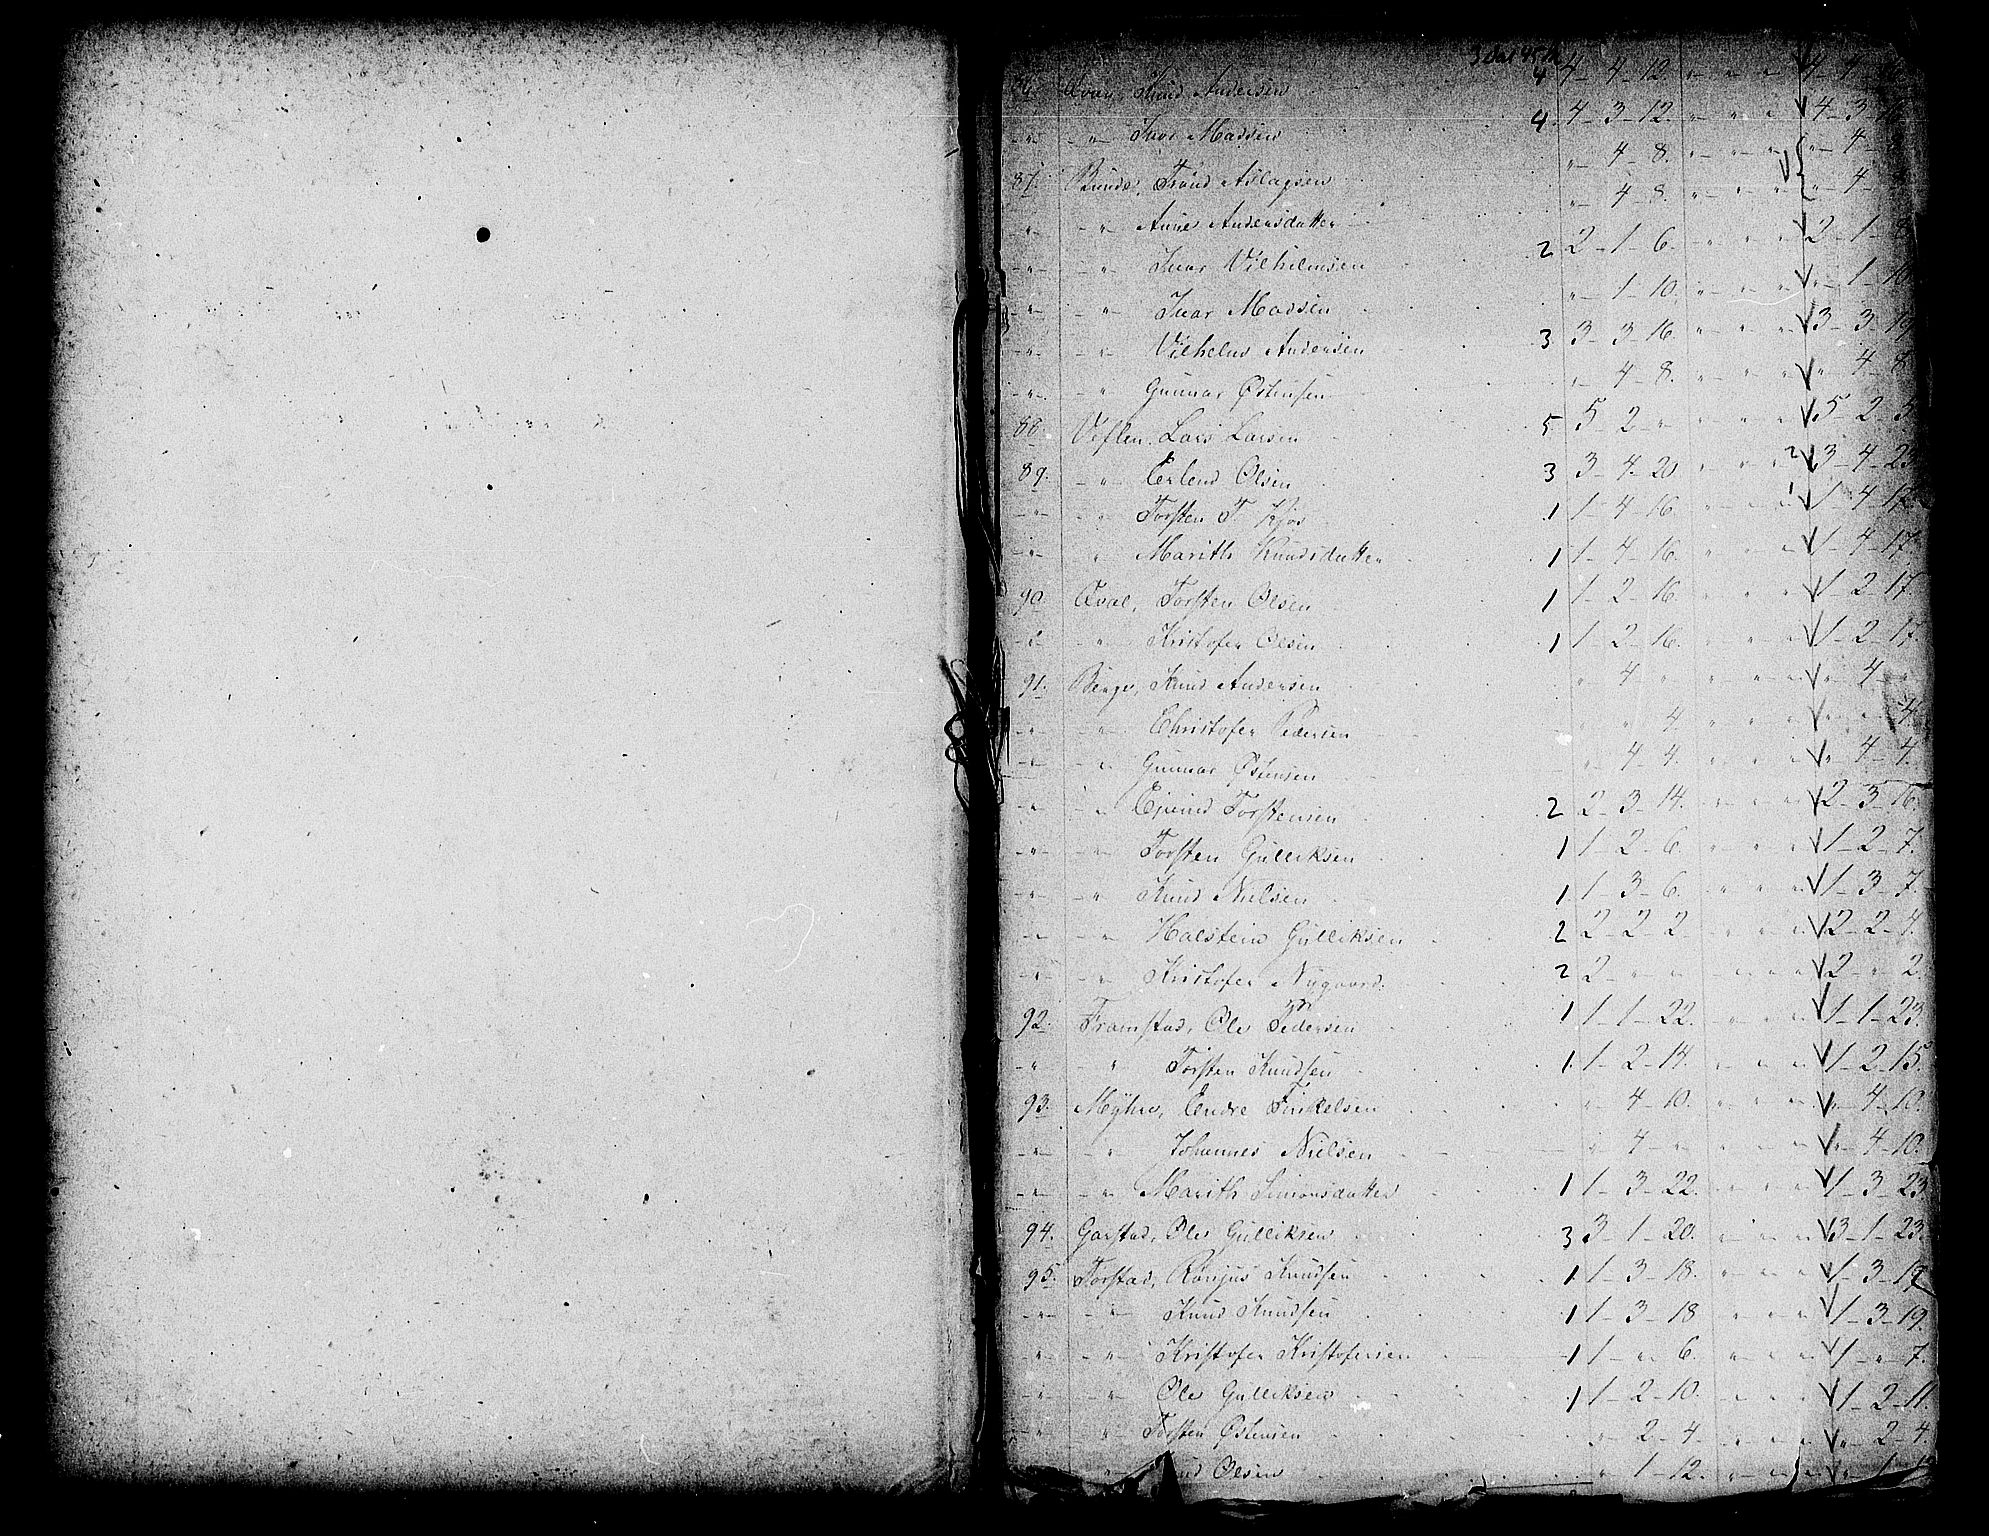 86. Knud Andersen 4 4 - 4 - 12 " " " 4 - 4
" " Ivar Madsen 4 4 - 3 - 12. " " " 4 - 3 - 16
87. Trond Aslagsen " 4 - 8. " " " " 4 - 8
" " Anne Andersdatter " 4 - 8. " " " " 4
" " Ivar Vilhelmsen 2 2 - 1 - 6. " " " 2 - 1 - 8
" " Ivar Madsen " 1 - 10. " " " " 1 - 10
" " Vilhelm Andersen 3 3 - 3 - 16. " " " 3 - 3 - 19
" " Gunnar Østensen " 4 - 8. " " " " 4 - 8
88. Veflen. Lars Larsen 5 5 - 2 - " " " " 5 - 2 - 5
89. " Erlend Olsen 3 3 - 4 - 20 " " " 2 3 - 4 - 23
" " Torsten T. Kjos 1 1 - 4 - 16 " " " 1 1 - 4 - 17
" " Marith Knudsdatter 1 1 - 4 - 16. " " " 1 - 4 - 17
90. Qvale, Torsten Olsen 1 1 - 2 - 16. " " " 1 - 2 - 17
" " Kristofer Olsen 1 1 - 2 - 16. " " " 1 - 2 - 17.
91. Berge, Knud Andersen " 4 " " " " " 4 - "
" " Christofer Pedersen " " 4 " " " " " 4
" " Gunnar Østensen " 4 - 4. " " " " 4 - 4.
" " Ejvind Torstensen 2 2 - 3 - 14. " " " 2 - 3 - 16.
" " Torsten Gulliksen 1 1 - 2 - 6. " " " 1 - 2 - 7.
" " Knud Nielsen 1. 1 - 3 - 6. " " " 1 - 3 - 7.
" " Halstein Gulliksen 2 2 - 2 - 2 " " " 2 - 2 - 4.
" " Kristofer Nygaard. 2 2 - " " " " " 2 - " 2.
92. Framstad, Ole Pedersen 1 1 - 1 - 22. " " " 1 - 1 - 23.
" " Torsten Knudsen 1. 1 - 2 - 14. " " " 1 - 2 - 15.
93. Myhre, Endre Tinkelsen " 4 - 10. " " " " 4 - 10.
" " Johannes Nielsen " 4 - " " " " " 4 - 10.
" " Marith Simonsdatter 1 1 - 3 - 22. " " " 1 - 3 - 23
94. Garstad, Ole Gulliksen 3 3 - 1 - 20. " " " 3 - 1 - 23.
95. Torstad, Knudsen 1 1 - 3 - 18. " " " 1 - 3 - 19
" " Knud Knudsen 1 1 - 3 - 18 " " " 1 - 3 - 19.
" " Kristofer Kristofersen 1 1 - " 6. " " " 1 - " 7.
" " Ole Gulliksen 1 1 - 2 - 10. " " " 1 - 2 - 11.
" " Torsten Østensen " 2 - 4. " " " " 2 - 4.
" Knud Olsen " 1 - 12. " " " " 1 - 12